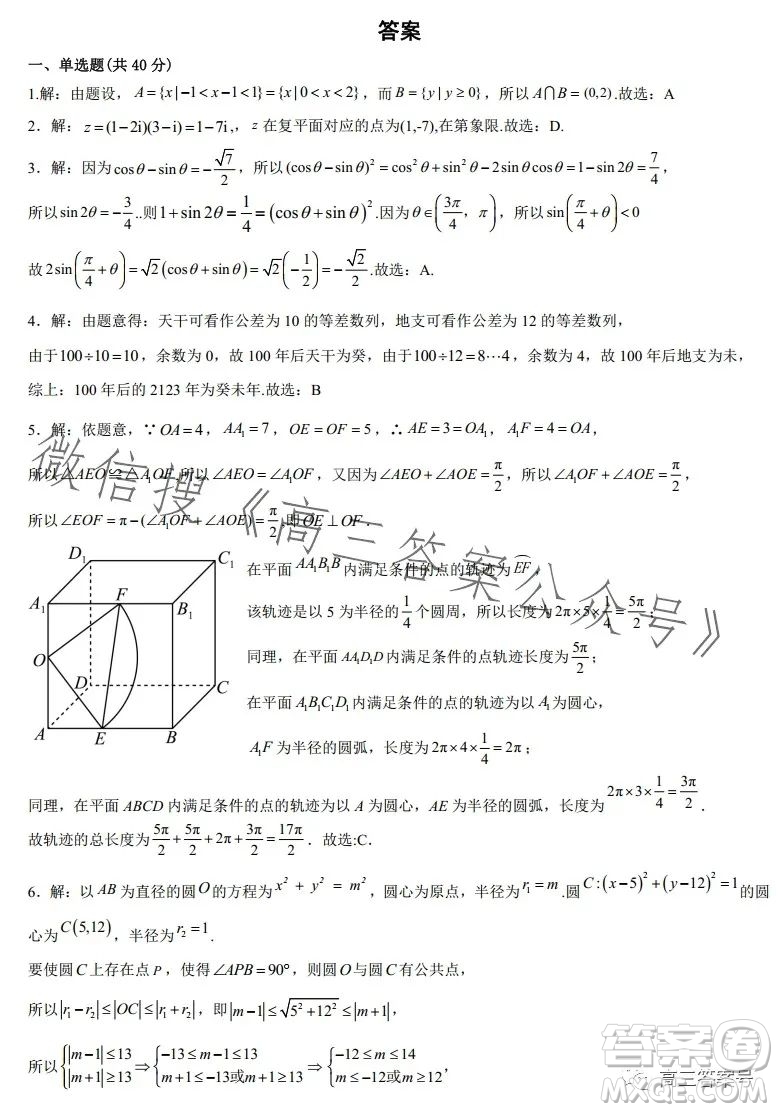 答案
一、单选题(共 40 分)
1.解：由题设，A={x|-1<x-1<1}={x|0<x<2}，而 B={y|y≥0}，所以 A∩B=(0,2).故选：A
2．解：z=(1-2i)(3-i)=1-7i,，z 在复平面对应的点为(1,-7),在第象限.故选：D.
3．解：因为cosθ-sinθ=-√7/2，所以(cosθ-sinθ)²=cos²θ+sin²θ-2sinθcosθ=1-sin2θ=7/4，
所以sin2θ=-3/4..则1+sin2θ=1/4=(cosθ+sinθ)².因为θ∈(3π/4，π)，所以sin(π/4+θ)<0
故2sin(π/4+θ)=√2(cosθ+sinθ)=√2(-1/2)=-√2/2.故选：A.
4．解：由题意得：天干可看作公差为 10 的等差数列，地支可看作公差为 12 的等差数列，
由于100÷10=10，余数为 0，故 100 年后天干为癸，由于100÷12=8⋯4，余数为 4，故 100 年后地支为未，
综上：100 年后的 2123 年为癸未年.故选：B
5．解：依题意，∵OA=4，AA₁=7，OE=OF=5，∴AE=3=OA₁，A₁F=4=OA，
所以△AEO≌△A₁OF.所以∠AEO=∠A₁OF，又因为∠AEO+∠AOE=π/2，所以∠A₁OF+∠AOE=π/2，
所以∠EOF=π-(∠A₁OF+∠AOE)=π/2,即OE⊥OF．
D₁
C₁
A₁
F
B₁
O
D
C
A
E
B
在平面 AA₁B₁B 内满足条件的点的轨迹为EF，
该轨迹是以 5 为半径的1/4个圆周，所以长度为2π×5×1/4=5π/2；
同理，在平面 AA₁D₁D 内满足条件的点轨迹长度为5π/2；
在平面 A₁B₁C₁D₁ 内满足条件的点的轨迹为以 A₁为圆心，
A₁F 为半径的圆弧，长度为2π×4×1/4=2π；
同理，在平面 ABCD 内满足条件的点的轨迹为以 A 为圆心，AE 为半径的圆弧，长度为2π×3×1/4=3π/2．
故轨迹的总长度为5π/2+5π/2+2π+3π/2=17π/2．故选:C．
6．解：以 AB 为直径的圆O的方程为x²+y²=m²，圆心为原点，半径为r₁=m.圆C:(x-5)²+(y-12)²=1的圆
心为C(5,12)，半径为r₂=1.
要使圆C上存在点P，使得∠APB=90°，则圆O与圆C有公共点，
所以|r₁-r₂|≤|OC|≤|r₁+r₂|，即|m-1|≤√5²+12²≤|m+1|，
所以{|m-1|≤13 |m+1|≥13⇒{-13≤m-1≤13 m+1≤-13或m+1≥13⇒{-12≤m≤14 m≤-12或m≥12，
微信搜《高三答案公众号》
答案卷
高三答案号